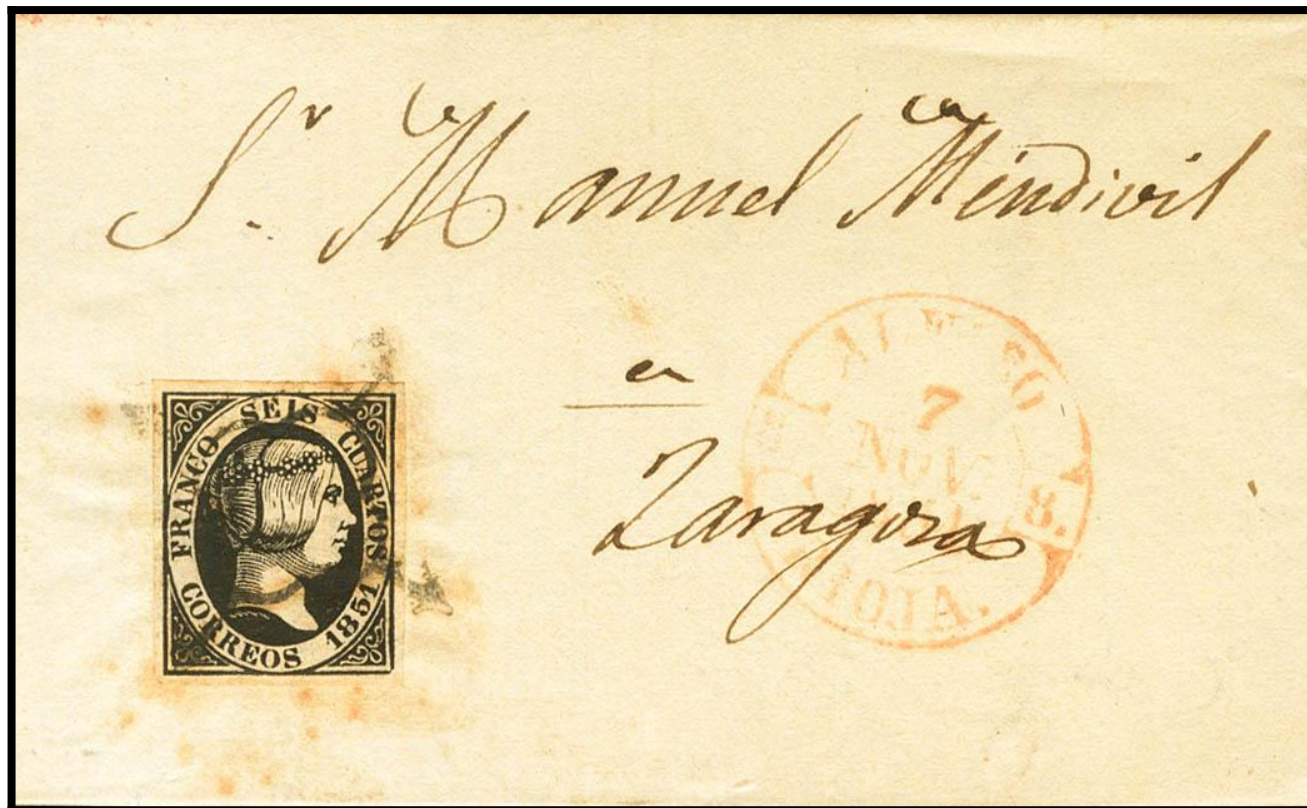 Sr. Manuel Mendivil
en
Zaragoza
FRANCO SEIS CUARTOS
CORREOS 1851
7
NOV.